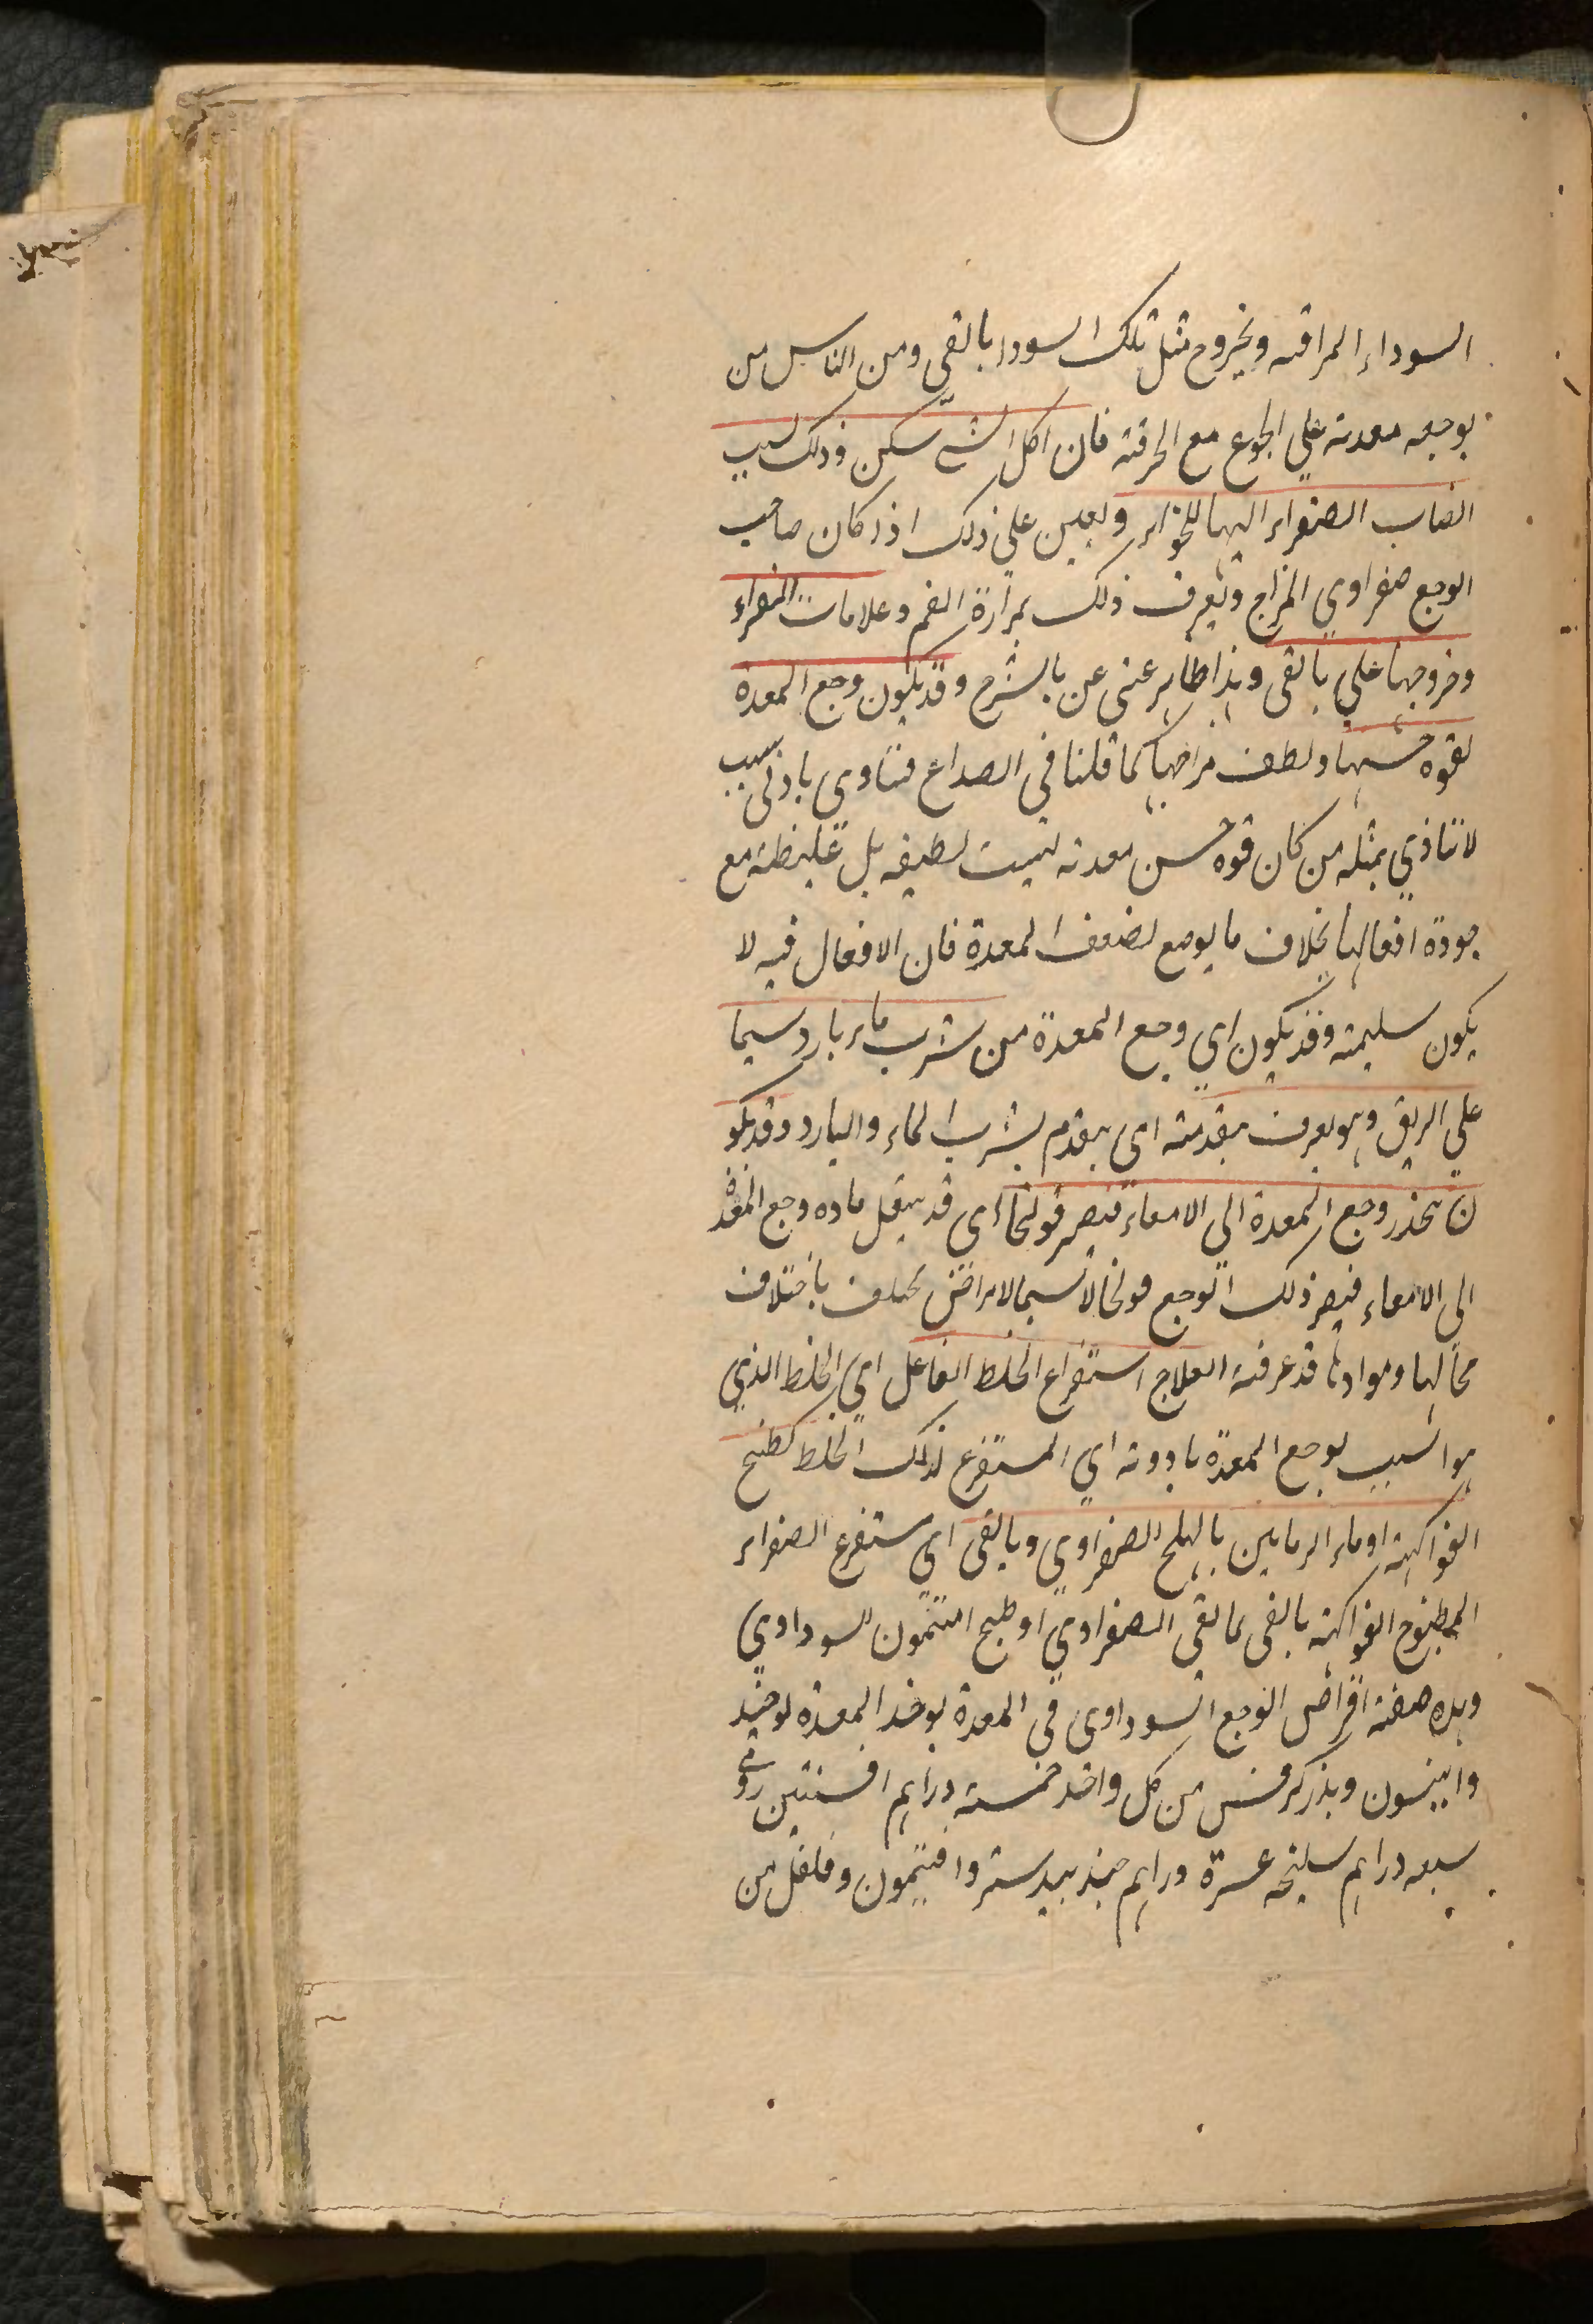 السوداء المراقه وبخروج مثل تلك السودا بالقى ومن الناس من
يوجعه معدته علي الجوع مع الحرقته فان اكل الشى سكن وذلك لسبب
انصاب الصفراء اليها للخواء ويعين علي ذلك اذا كان صاحب
الوجع صفراوي المزاج وتعرف ذلك بمرارة الفم وعلامات الصفراء
وخروجها علي بالقى وهذا ظاهر عنى عن بالشرح وقد يكون وجع المعدة
لقوه حسها ولطف مزاجها كما قلنا في الصداع فتاوى بادنى سبب
لا تتاذي بمثله من كان قوه حسن معدته ليست لطيفه بل غليظة مع
جودة افعالها بخلاف ما يوجع لضعف المعدة فان الافعال فيه لا
يكون سليمته وقد يكون اي وجع المعدة من شرب ماء بارد سيما
علي الريق وهو يعرف بتقدمته اى بتقدم بشرب الماء والبارد وقد يكو
ن ينحذر وجع المعدة الي الامعاء فيصير قولنجا اى قد ينتقل ماده وجع المعدة
الى الامعاء فيصر ذلك الوجع قولنجا لا سيما الامراض تختلف باختلاف
محالها وموادها قد عرفته العلاج استفراع الخلط الفاعل اي الخلط الذي
هو السبب لوجع المعدة بادوته اي المستفرع لذلك الخلط كطبخ
الفواكهة او ماء الرمانين بالهلج الصفراوي وبالقى اى ستفرع الصفراء
المطبوخ الفواكهة بالقى لما لقى الصفراوي او طبح افتيمون للسوداوي
وهذه صفته اقراص الوجع السوداوى في المعدة يوخذ المعدة يوخيذ
وانيسون وبذركرفس من كل واحد خمسته دراهم افسنتين رومى
سبعه دراهم سليخه عسرة دراهم جندبيدستر وافتيمون وفلفل من